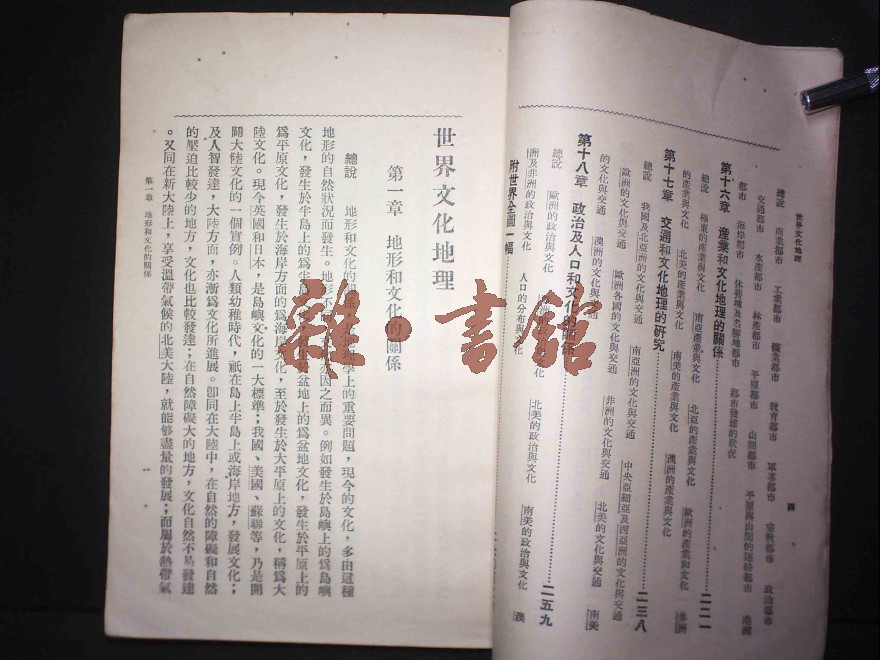 世界文化地理
四
總說 商業都市 工業都市 礦業都市 教育都市 軍事都市 宗教都市 政治都市
交通都市 水產都市 林產都市 平原都市 山間都市 平原與山間的連絡都市 港灣
都市 海岸都市 休養地及名勝地都市 都市發達的狀況
第十六章 產業和文化地理的關係 二二一
總說 極東的產業與文化 南亞產業與文化 北亞的產業與文化 歐洲的產業和文化 非洲
的產業與文化 北美的產業與文化 南美的產業與文化 澳洲的產業與文化
第十七章 交通和文化地理的研究 二三八
總說 我國及北亞洲的文化與交通 南亞洲的文化與交通 中央亞細亞及西亞洲的文化與交通
歐洲的文化與交通 歐洲各國的文化與交通 非洲的文化與交通 北美的文化與交通 南美
的文化與交通 澳洲的文化與交通
第十八章 政治及人口和文化的關係 二五九
總說 歐洲的政治與文化 洲的政治與文化 北美的政治與文化 南美的政治與文化 澳
洲及非洲的政治與文化 人口的分布與文化
附世界全圖一幅
世界文化地理
第一章 地形和文化的關係
總說 地形和文化的關 地理學上的重要問題，現今的文化，多由這種
地形的自然狀況而發生。地形不 亦因之而異。例如發生於島嶼上的爲島嶼
文化，發生於半島上的爲半島 盆地上的爲盆地文化，發生於平原上的
爲平原文化，發生於海岸方面的爲海岸文化，至於發生於大平原上的文化，稱爲大
陸文化。現今英國和日本，是島嶼文化的一大標準；我國、美國、蘇聯等，乃是開
闢大陸文化的一個實例。人類幼稚時代，祇在島上半島上或海岸地方，發展文化；
及人智發達，大陸方面，亦漸爲文化所進展。卽同在大陸中，在自然的障礙和自然
的壓迫比較少的地方，文化也比較發達；在自然障礙大的地方，文化自然不易發達
。又同在新大陸上，享受溫帶氣候的北美大陸，就能够盡量的發展；而屬於熱帶氣
第一章 地形和文化的關係
一
雅·書館